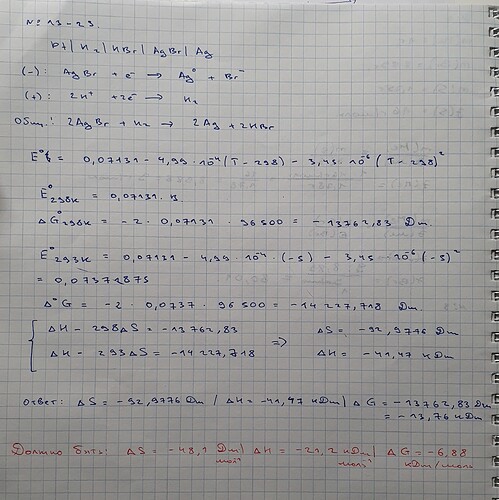 № 13-23.
Pt | H₂ | HBr | AgBr | Ag
(-): AgBr + e⁻ → Ag⁰ + Br⁻
(+): 2H⁺ + 2e⁻ → H₂
Общ.: 2AgBr + H₂ → 2Ag + 2HBr
E° = 0,07131 - 4,99 · 10⁻⁴ (T - 298) - 3,45 · 10⁻⁶ (T - 298)²
E°298K = 0,07131 В
ΔG°298K = -2 · 0,07131 · 96500 = -13762,83 Дж.
E°293K = 0,07131 - 4,99 · 10⁻⁴ · (-5) - 3,45 · 10⁻⁶ (-5)²
= 0,07371875
Δ°G = -2 · 0,0737 · 96500 = -14227,718 Дж.
ΔH - 298ΔS = -13762,83 => ΔS = -92,9776 Дж
ΔH - 293ΔS = -14227,718 ΔH = -41,47 кДж
Ответ: ΔS = -92,9776 Дж | ΔH = -41,47 кДж | ΔG = -13762,83 Дж
= -13,76 кДж
Должно быть: ΔS = -48,1 Дж/моль | ΔH = -21,2 кДж/моль | ΔG = -6,88 кДж/моль